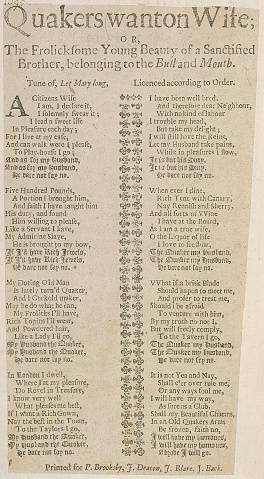 Quakers wanton Wife;
OR,
The Frolicksome Young Beauty of a Sanctified
Brother, belonging to the Bull and Mouth.
Tune of, Let Mary long, Licenced according to Order.
A Citizens Wife
I am, I declare it,
I solemnly swear it;
I lead a sweet life
In Pleasure each day;
For I live at my ease,
And can walk were I please,
To Play-house I go;
And as for my Husband,
And as for my Husband,
He dare not say no.
Five Hundred Pounds,
A Portion I brought him,
And faith I have taught him
His duty, and found
Him willing to please,
Like a Servant I have,
My Admiring Slave,
He is brought to my bow,
If I'll have Rich Jewels,
If I'll have Rich Jewels,
He dare not say no.
My Doting Old Man
Is lately turn'd Quater,
And I Cuckold maker,
May he do what he can,
My Frolicks I'll have,
Rich Topins I'll wear,
And Powdered hair,
Like a Lady I'll go,
My Husband the Quaker,
My Husband the Quaker,
He dare not say no.
In London I dwell,
Where I at my pleasure,
Do Revel in Treasure,
I know very well
What pleases me best,
If I want a Rich Gown,
Nay the best in the Town,
To the Taylors I go,
My Husband the Quaker,
My Husband the Quaker,
He dare not say no.
I have been well bred,
And therefore dear Neighbour,
With no kind of Labour
I trouble my head,
But take my delight;
I will fill have the Reins,
Let my Husband take pains,
While in pleasures I flow,
It is but his Duty,
It is but his Duty,
He dare not say no.
When ever I dine,
Rich Tent with Canary,
Nay Rennish and Sherry,
And all sorts of Wine
I have at the Board,
As I am a true wife,
O the Liquor of life
I love to see flow,
The Husband
The Husband
He dare not say no.
What if a brisk Blade
Should happen to meet me,
And profer to treat me,
Should I be afraid
To venture with him,
By my troth no not I,
But will freely comply,
To the Tavern I go,
The Quaker my Husband,
The Quaker my Husband,
He dare not say no.
It is not Yea and Nay,
Shall e'er over rule me,
Or any ways fool me,
I will have my way,
As sure as a Club.
Shall my Beautiful Charms,
In an Old Quakers Arms
Be frozen, faith no,
I will have my humours,
I will have my humours,
Whether I will go.
Printed for P. Brooksby, J. Deacon, J. Blare, J. Back.